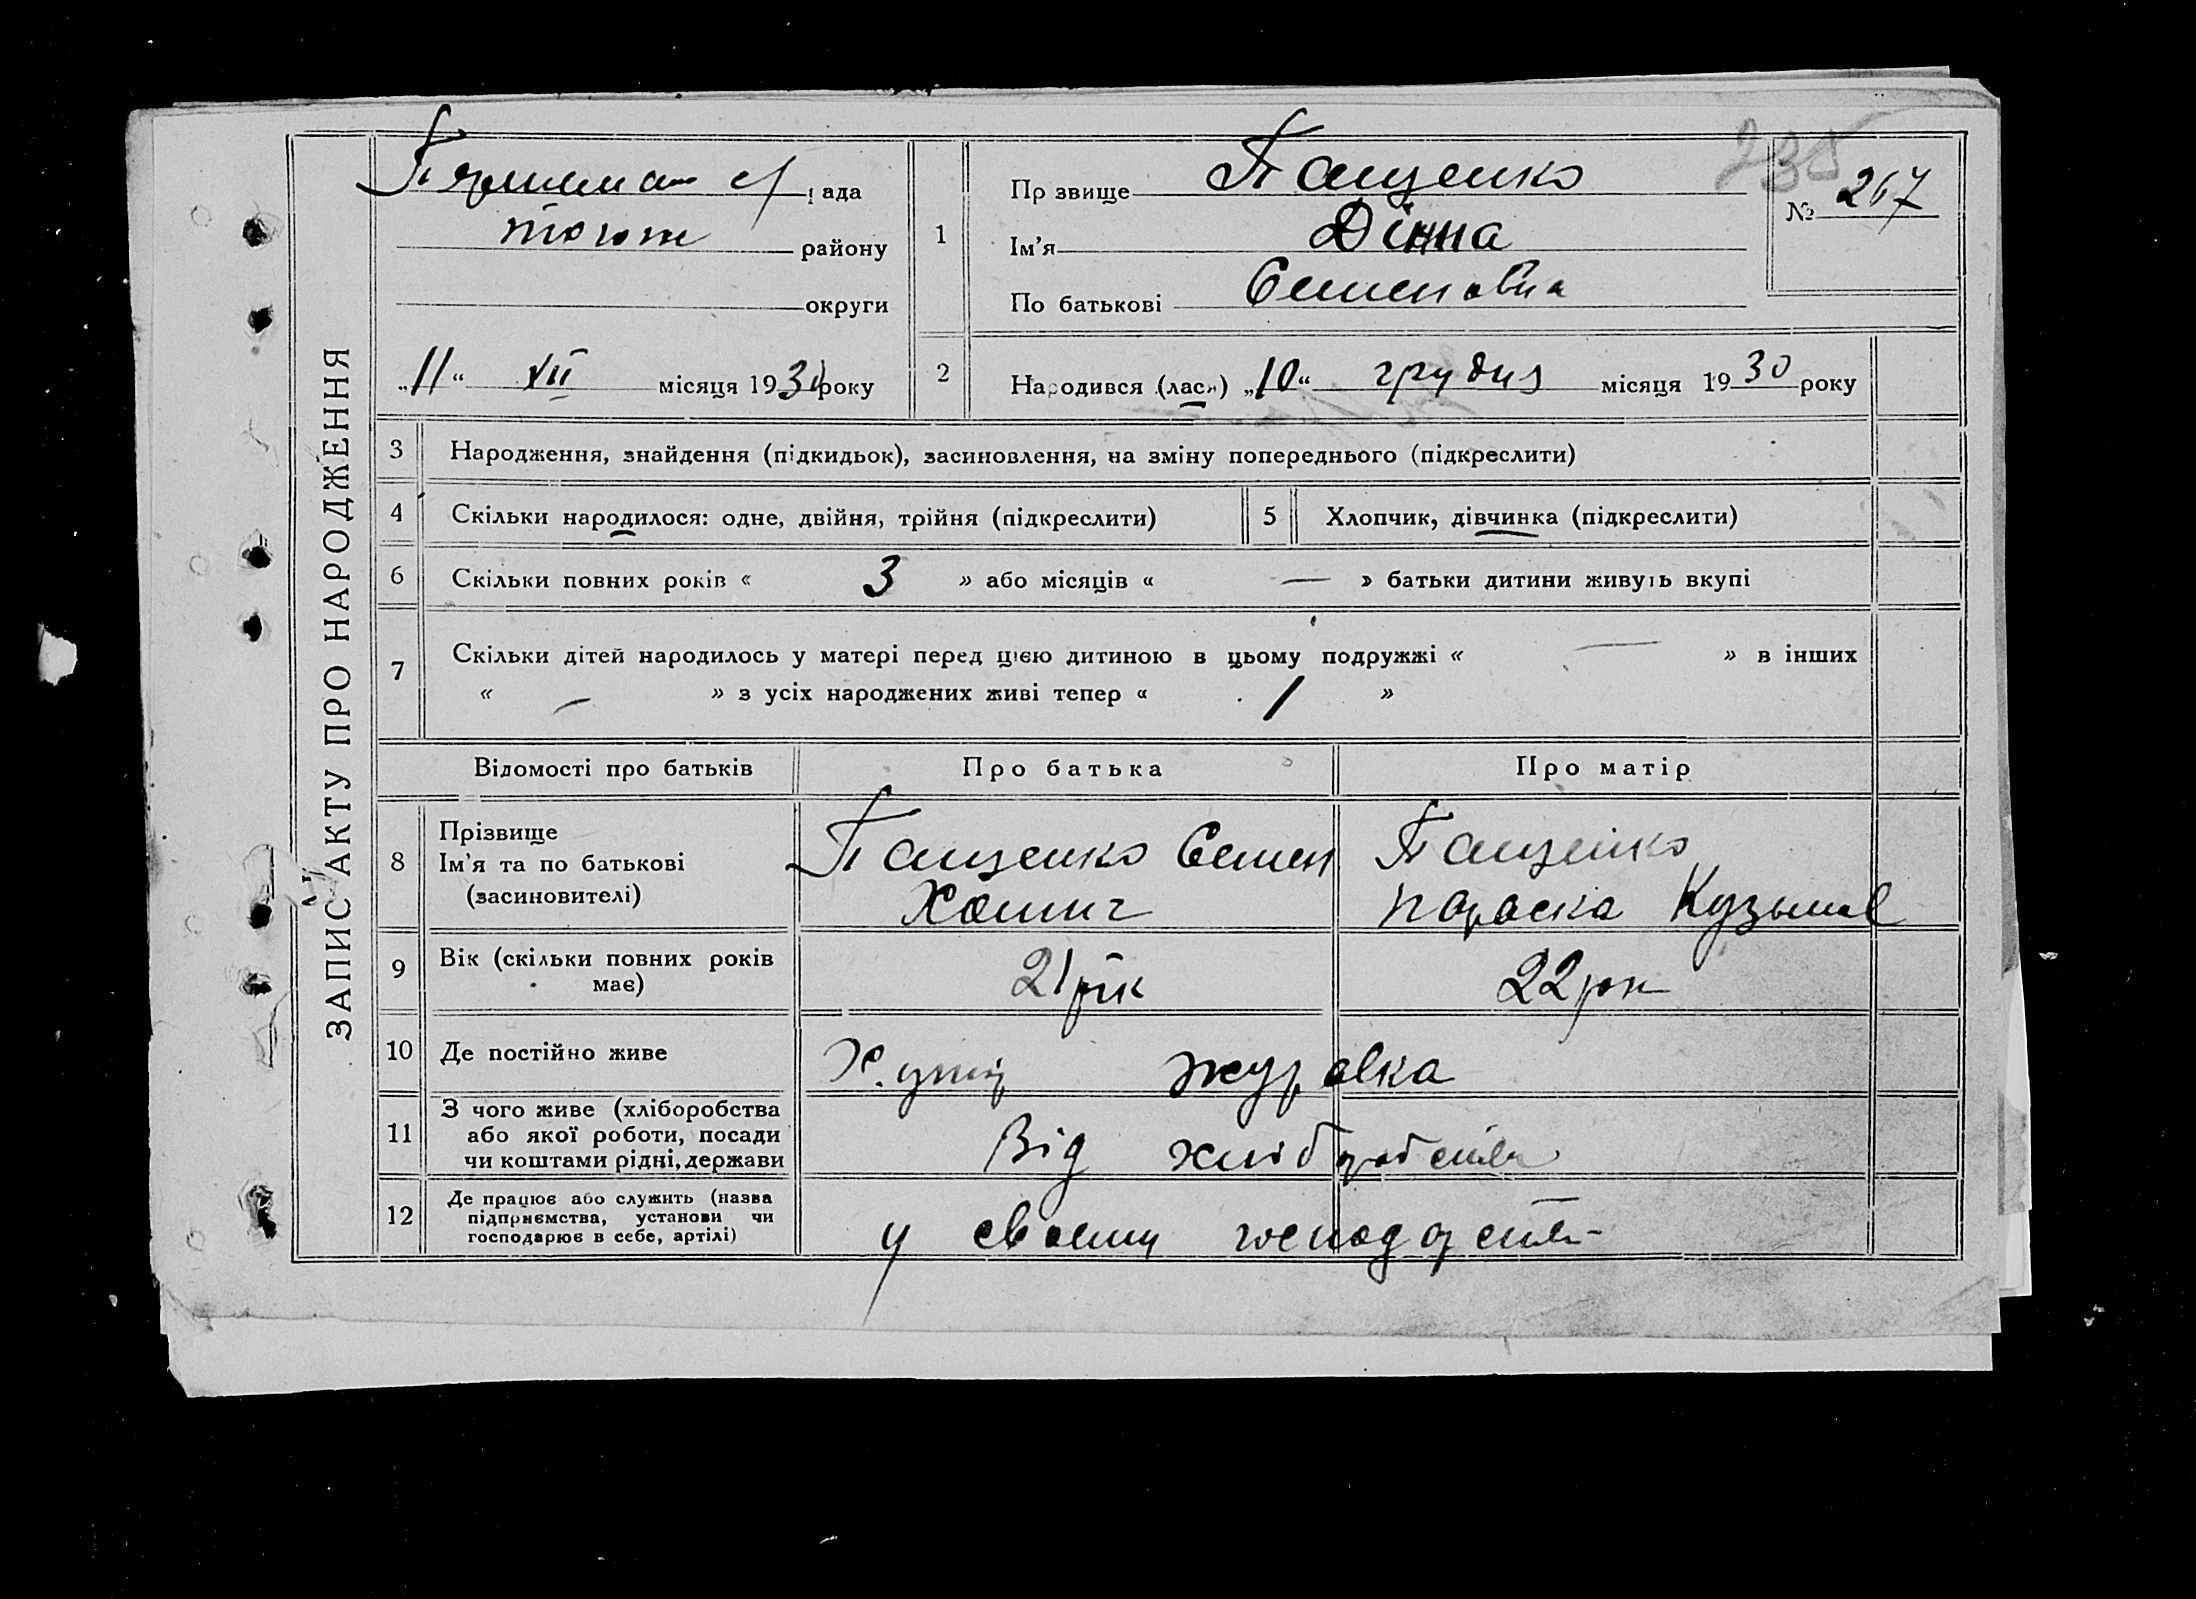 ЗАПИС АКТУ ПРО НАРОДЖЕННЯ
рада
району
округи
„11“ XII місяця 1930 року
1
Прізвище Пащенко
Ім’я Дінна
По батькові Семеновна
235
№ 267
2 Народився (лася) „10“ грудня місяця 1930 року
3 Народження, знайдення (підкидьок), засиновлення, на зміну попереднього (підкреслити)
4 Скільки народилося: одне, двійня, трійня (підкреслити) 5 Хлопчик, дівчинка (підкреслити)
6 Скільки повних років « 3 » або місяців « — » батьки дитини живуть вкупі
7 Скільки дітей народилось у матері перед цією дитиною в цьому подружжі « — » в інших
« — » з усіх народжених живі тепер « 1 »
Відомості про батьків Про батька Про матір
8 Прізвище
Ім’я та по батькові
(засиновителі)
Пащенко Семен
Пащенко
Параска Кузьмів
9 Вік (скільки повних років
має)
21 рік 22 рок
10 Де постійно живе Журавка
11 З чого живе (хліборобства
або якої роботи, посади
чи коштами рідні, держави
Від хліборобства
12 Де працює або служить (назва
підприємства, установи чи
господарює в себе, артілі)
у своему господарстві